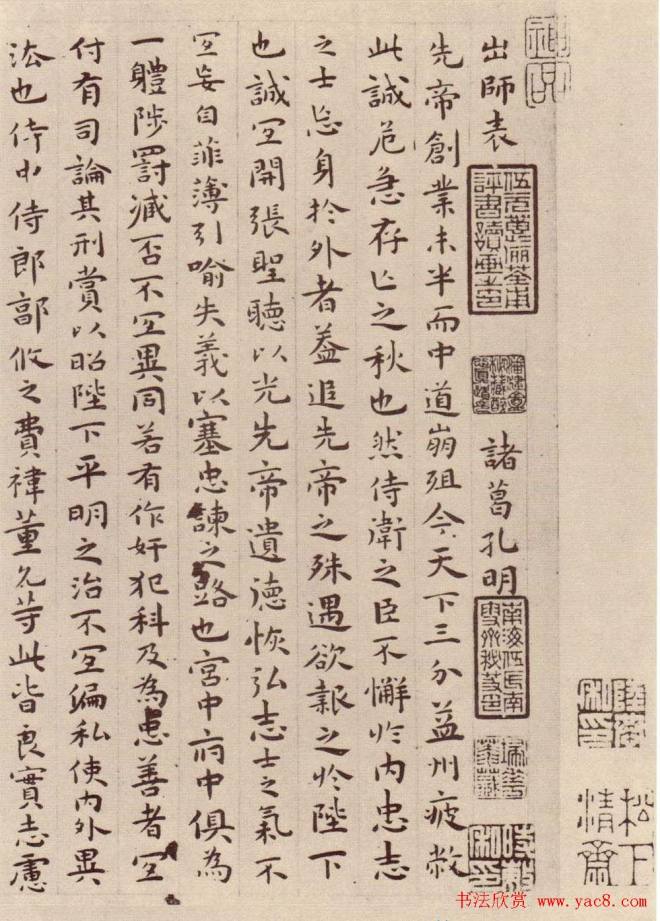 松下清齋
出師表 諸葛孔明
先帝創業未半而中道崩殂今天下三分益州疲敝
此誠危急存亡之秋也然侍衛之臣不懈於内忠志
之士忘身於外者蓋追先帝之殊遇欲報之於陛下
也誠宜開張聖聽以光先帝遺德恢弘志士之氣不
宜妄自菲薄引喻失義以塞忠諫之路也宮中府中俱為
一體陟罰臧否不宜異同若有作奸犯科及為忠善者宜
付有司論其刑賞以昭陛下平明之治不宜偏私使内外異
法也侍中侍郎郭攸之費禕董允等此皆良實志慮
书法欣赏 www.yac8.com